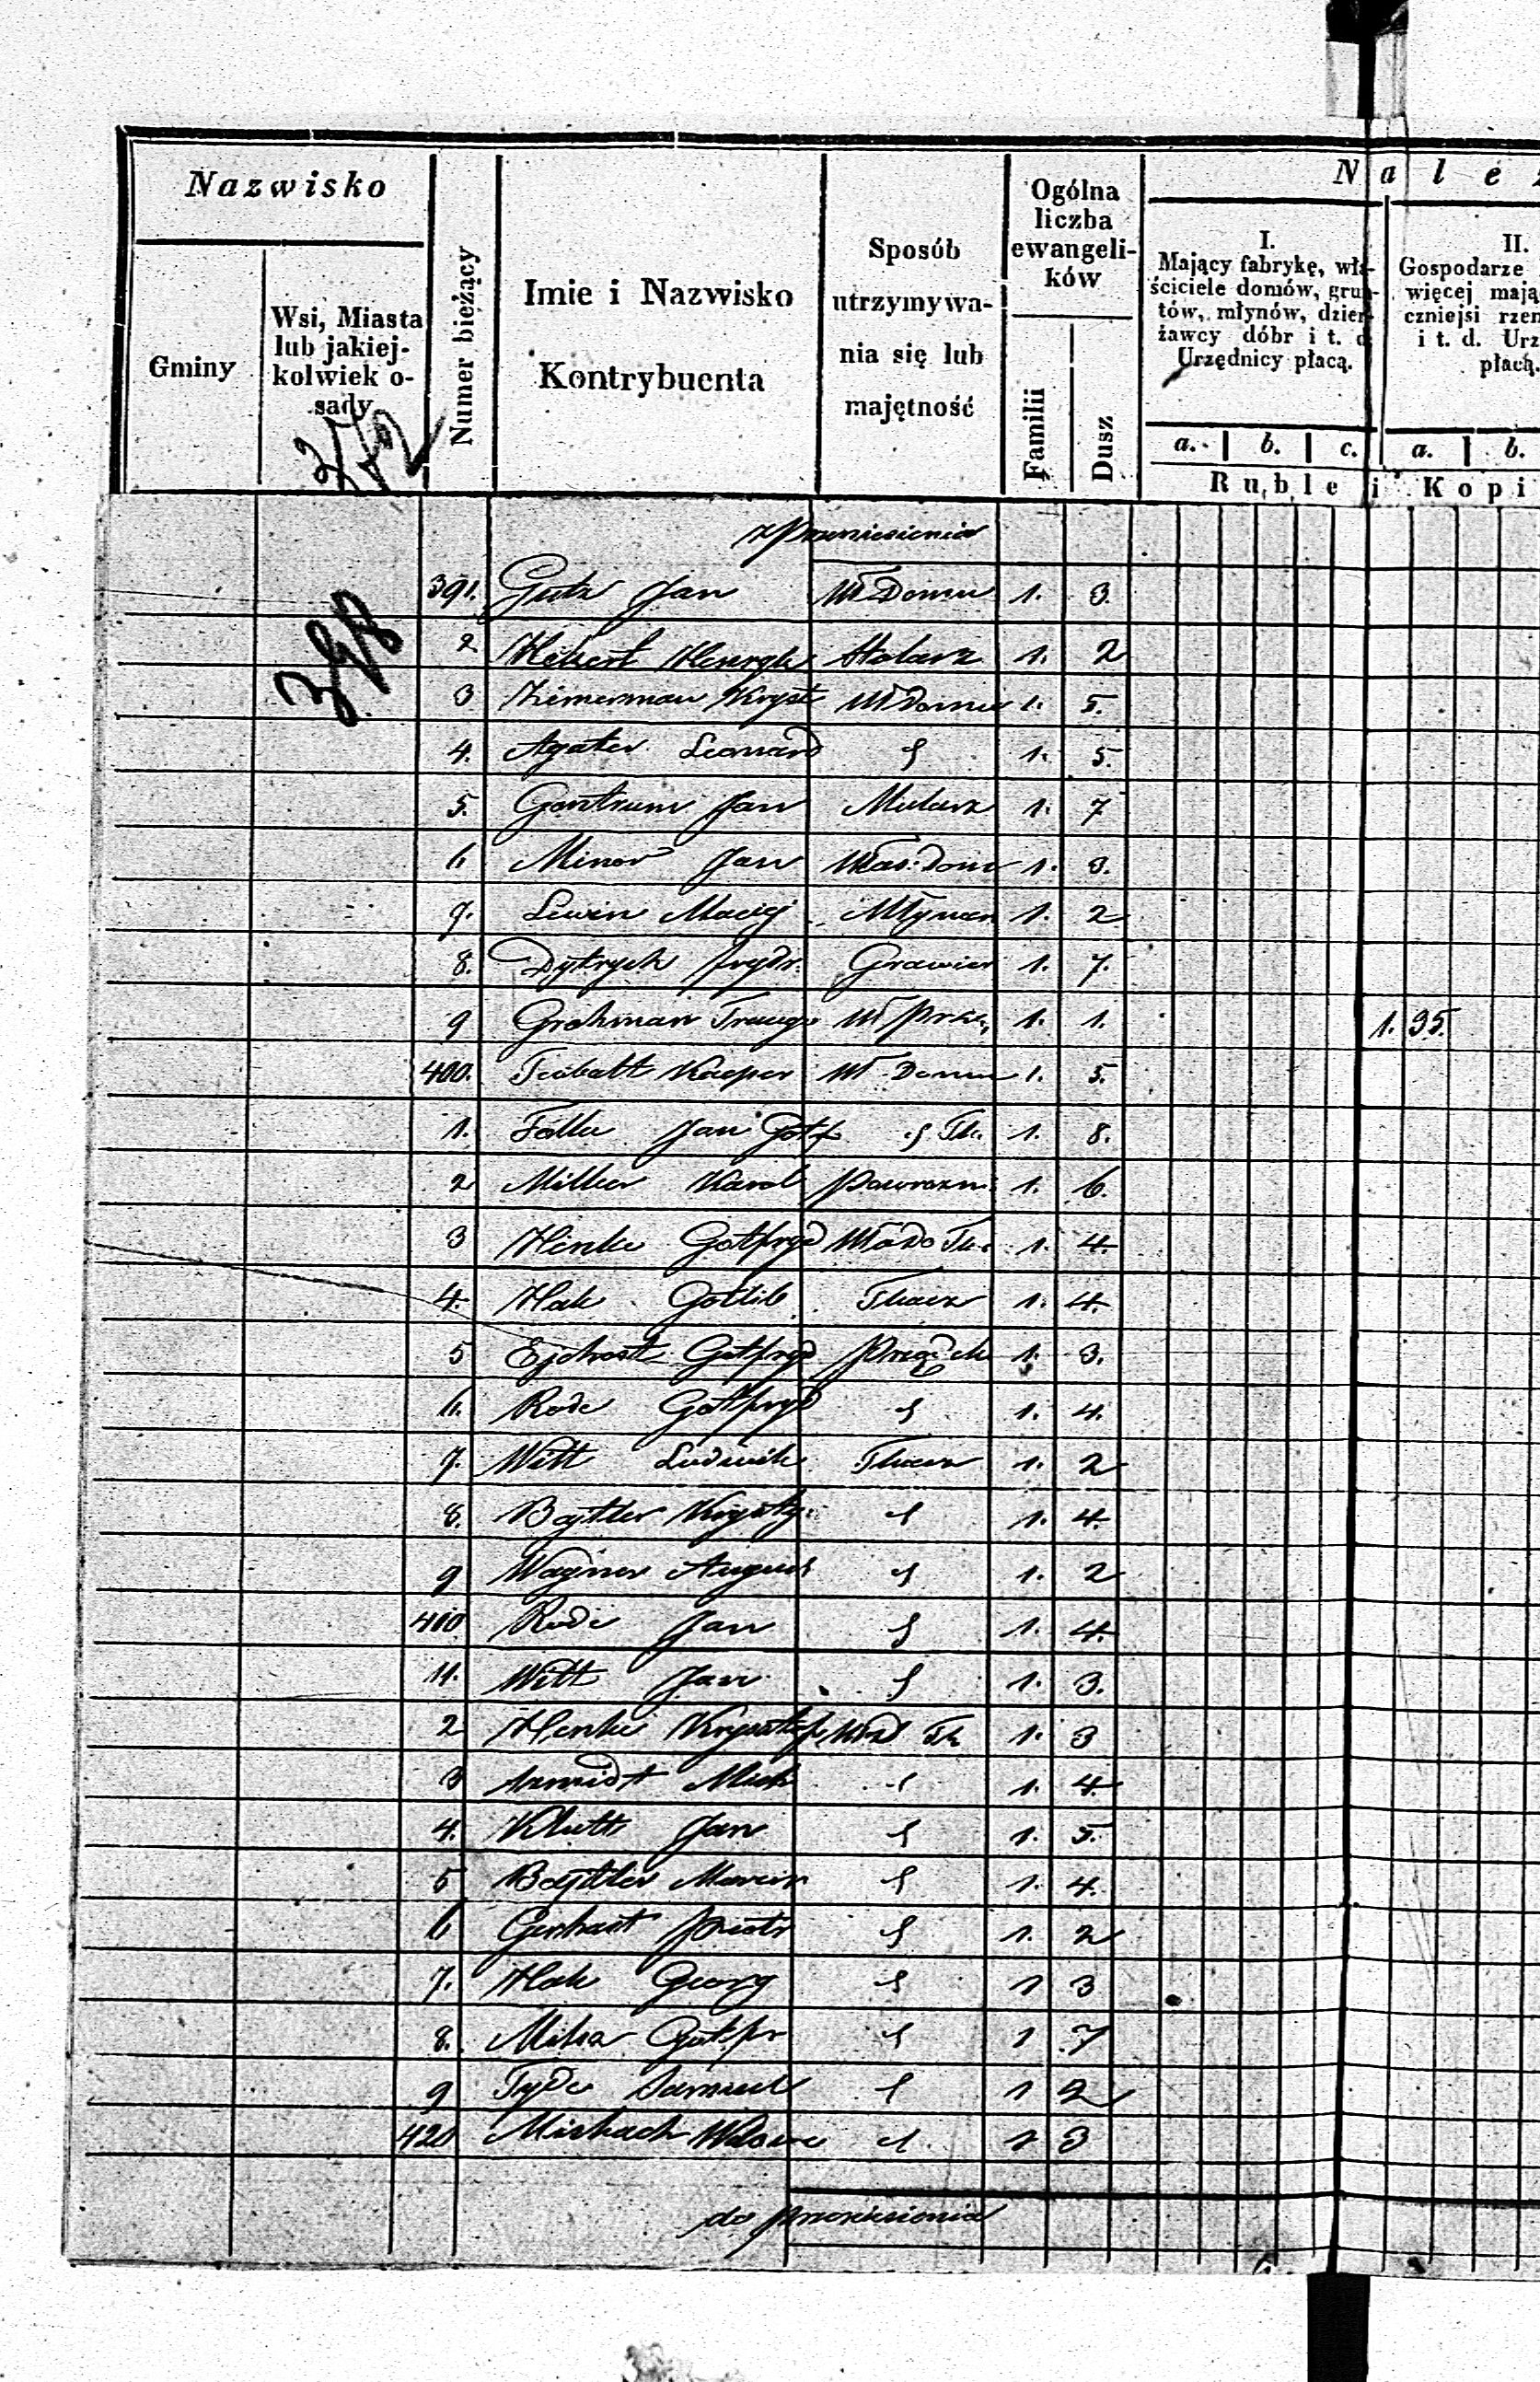 Nazwisko
Gminy
Wsi, Miasta
lub jakiej-
kolwiek o-
sady
Numer bieżący
Imie i Nazwisko
Kontrybuenta
Sposób
utrzymywa-
nia się lub
majętność
Ogólna
liczba
ewangeli-
ków
Familii
Dusz
N a l e
I.
Mający fabrykę, wła-
ściciele domów, grun-
tów, młynów, dzier-
żawcy dóbr i t. d.
Urzędnicy płacą.
a. b. c.
II.
Gospodarze
więcej mają
czniejsi rzem
i t. d. Urz
płacą.
a. b.
Ruble i Kopi
z przeniesienia
391. Gutz Jan Wł Domu 1. 3.
2 Hekert Henryk Stolarz 1. 2
3 Zimerman Kryst Wł Domu 1. 5.
4. Agater Leonard 1. 5.
5. Gontrum Jan Mularz 1. 7
6 Minor Jan Właś: Dom 1. 3.
7. Lewin Maciej Młynarz 1. 2
8. Dytrych frydr. Grawier 1. 7.
9 Grohman Traug Wł Przę 1. 1. 1. 95.
400. Teubalt Kacper Wł Domu 1. 5.
1. Jan Gotf Tk. 1. 8.
2 Miller Karol Powrozn: 1. 6.
3 Henke Gotfryd Wł Do Tk. 1. 4.
4. Hak Gotlib Tkacz 1. 4.
5 Gotfryd 1. 3.
6. Rode Gotfryd 1. 4.
7. Witt Ludwik Tkacz 1. 2
8. Bajtler Krysty: 1. 4.
9 Wagner August 1. 2
410 Rode Jan 1. 4.
11. Witt Jan 1. 3.
2 Henke Krysztof Wł d Tk 1. 3
3 Szmidt Mich 1. 4
4. Klutt Jan 1. 5.
5 Bajtler Marcin 1. 4.
6 Gerhart Piotr 1. 2
7. Hak Georg 1 3
8. Milsz Gotfr 1 7
9 Tyde Samuel 1 2
420 Misbach Wdowa 1 3
do przeniesienia